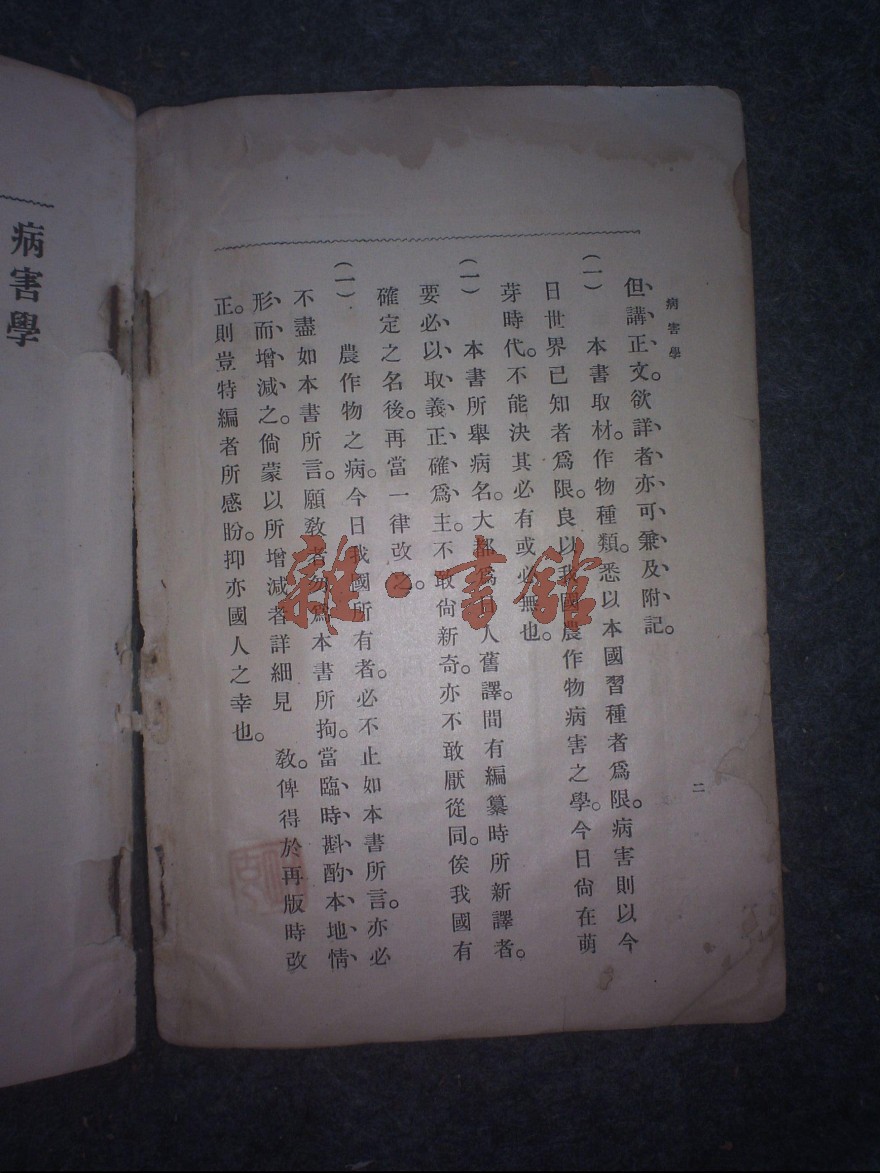 病害學
二
但講正文。欲詳者亦可兼及附記。
(一)　本書取材。作物種類。悉以本國習種者爲限。病害則以今
日世界已知者爲限。良以我國農作物病害之學。今日尙在萌
芽時代。不能決其必有或必無也。
(一)　本書所舉病名。大都爲日人舊譯。間有編纂時所新譯者。
要必以取義正確爲主。不敢尙新奇。亦不敢厭從同。俟我國有
確定之名後。再當一律改之。
(一)　農作物之病。今日我國所有者。必不止如本書所言。亦必
不盡如本書所言。願敎者勿爲本書所拘。當臨時斟酌本地情
形而增減之。倘蒙以所增減者詳細見　敎。俾得於再版時改
正。則豈特編者所感盼。抑亦國人之幸也。
病害學
雜·書館